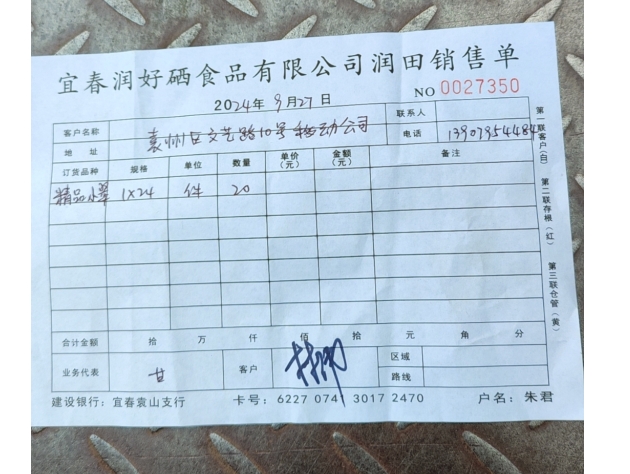 宜春润好硒食品有限公司润田销售单
2024年9月27日
NO 0027350
客户名称 袁州区文艺路10号移动公司 联系人
地址 电话
订货品种 规格 单位 数量 单价（元） 金额（元） 备注
精品小 1×24 件 20
合计金额 拾 万 仟 佰 拾 元 角 分
业务代表 甘 客户 区域
路线
建设银行：宜春袁山支行 卡号：6227 0741 3017 2470 户名：朱君
第一联客户（白）
第二联存根（红）
第三联仓管（黄）